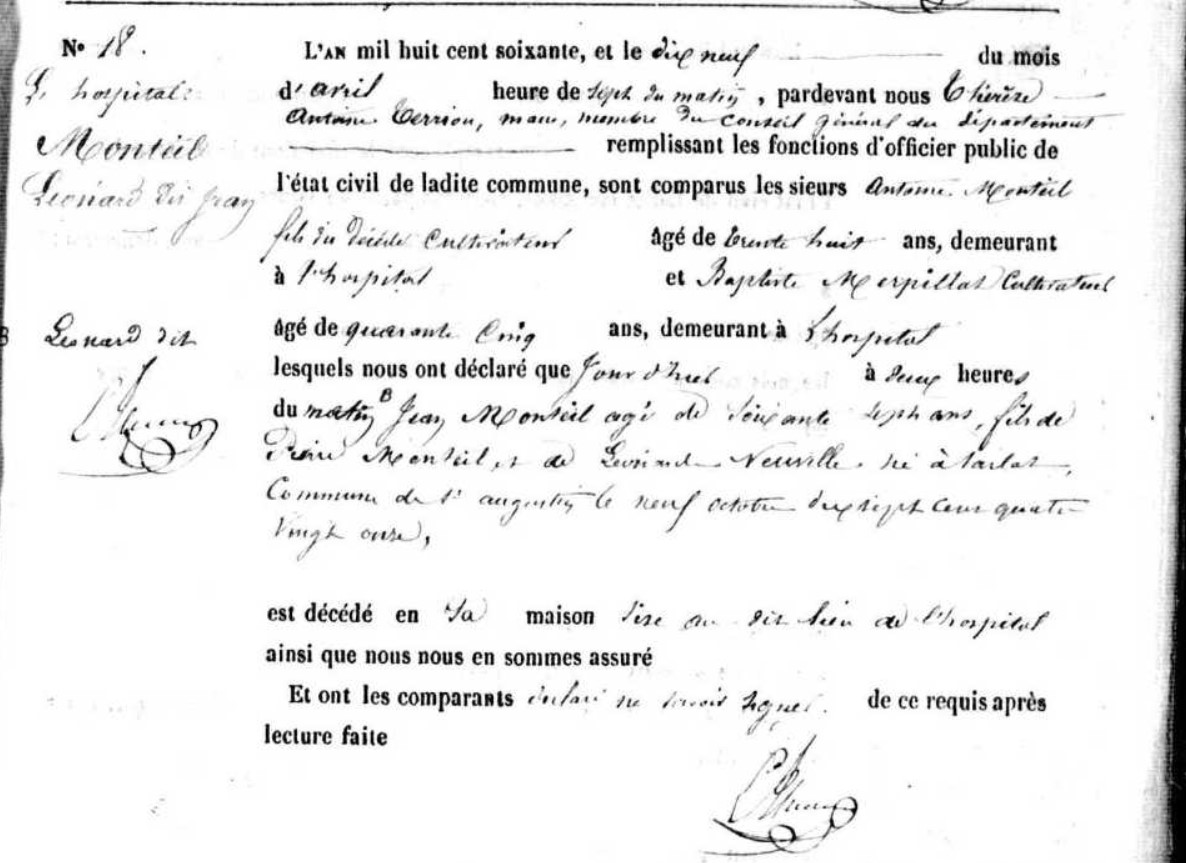 N° 18.
L'hospital
Monteil
Léonard dit Jean
L'AN mil huit cent soixante, et le dix neuf du mois
d'avril heure de sept du matin, pardevant nous Thérèse
Antoine Terriou, maire, membre du conseil général du département
remplissant les fonctions d'officier public de
l'état civil de ladite commune, sont comparus les sieurs Antoine Monteil
fils du décédé Cultivateur âgé de trente huit ans, demeurant
à l'hospital et Baptiste Merpillat Cultivateur
B Léonard dit
âgé de quarante Cinq ans, demeurant à L'hospital
lesquels nous ont déclaré que Jourd'huy à deux heures
du matin B Jean Monteil agé de soixante sept ans, fils de
Pierre Monteil, et de Léonarde Neuville né à tarlat,
Commune de St augustin le neuf octobre dix sept cent quatre
Vingt onze,
est décédé en sa maison sise au dit lieu de l'hospital
ainsi que nous nous en sommes assuré
Et ont les comparants déclaré ne savoir signer. de ce requis après
lecture faite